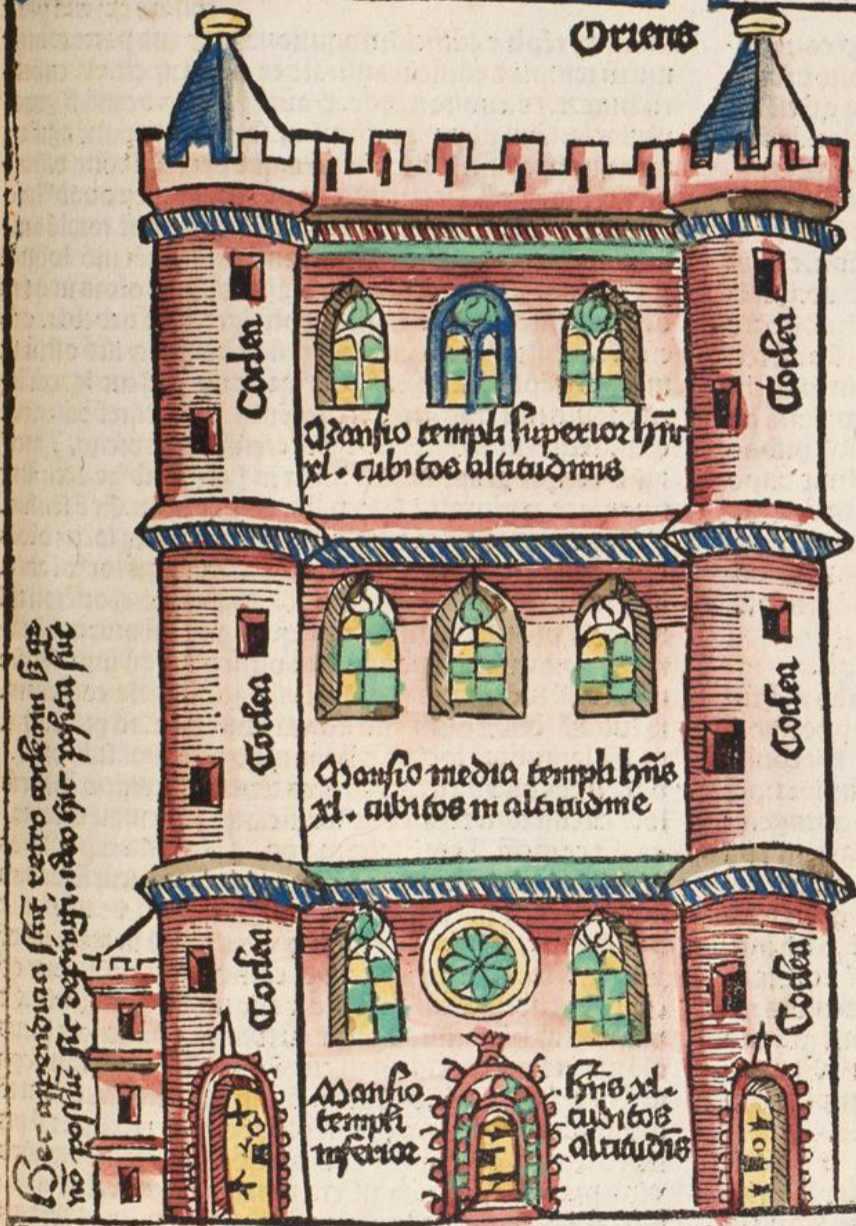 Oriens
Coclea
Coclea
Mansio templi superior hñs
xl. cubitos altitudinis
Coclea
Coclea
Mansio media templi hñs
xl. cubitos in altitudine
Coclea
Coclea
Mansio
templi
inferior
hñs xl.
cubitos
altitudĩs
Hec appendicia sunt retro
nõ possũt sic depingi ideo hic posita sũt